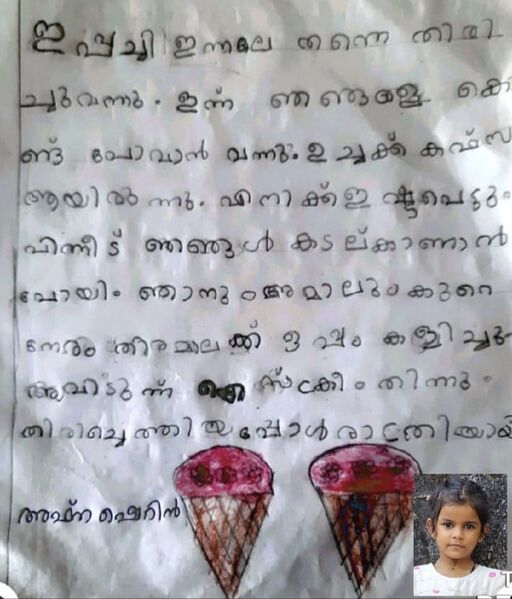 ഇപ്പച്ചി ഇന്നലെ തന്നെ തിരി
ച്ചുവന്നു. ഇന്ന് ഞങ്ങളെ കൊ
ണ്ട് പോവാൻ വന്നു. ഉച്ചക്ക് കഫ്സ
ആയിരുന്നു. എനിക്ക് ഇഷ്ടപെട്ടു.
പിന്നീട് ഞങ്ങൾ കടല്കാണാൻ
പോയി. ഞാനും അമാലും കുറെ
നേരം തിരമാലക്ക് ഒപ്പം കളിച്ചു.
ആവിടുന്ന് ഐസ്ക്രീം തിന്നു.
തിരിച്ചെത്തിയപ്പോൾ രാത്രിയായി
അഫ്ന ഷെറിൻ